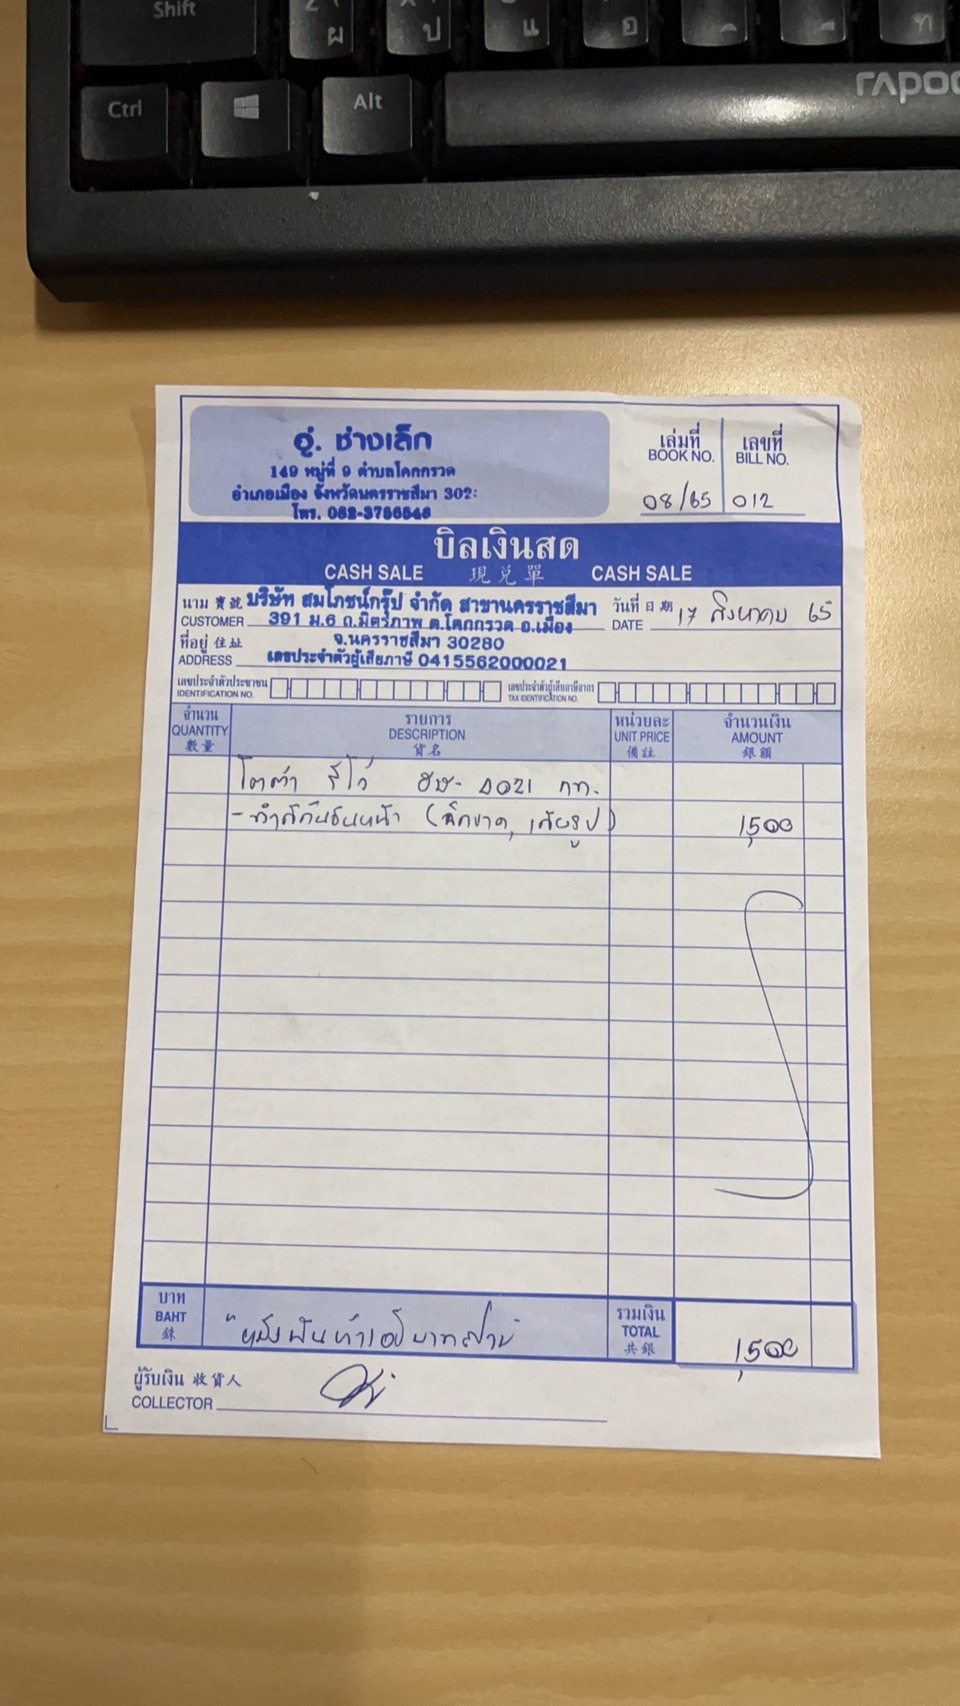 Shift
ผ ป แ อ
ท
Ctrl Alt
rapoo
อู่. ช่างเล็ก
149 หมู่ที่ 9 ตำบลโคกกรวด
อำเภอเมือง จังหวัดนครราชสีมา 302
โทร.
เล่มที่ เลขที่
BOOK NO. BILL NO.
08/65 012
บิลเงินสด
CASH SALE 現兌單 CASH SALE
นาม 寳號 บริษัท สมโภชน์กรุ๊ป จำกัด สาขานครราชสีมา วันที่ 日期 17 สิงหาคม 65
CUSTOMER 391 ม.6 ถ.มิตรภาพ ต.โคกกรวด อ.เมือง DATE
ที่อยู่ 住址 จ.นครราชสีมา 30280
ADDRESS เลขประจำตัวผู้เสียภาษี 0415562000021
เลขประจำตัวประชาชน เลขประจำตัวผู้เสียภาษีอากร
IDENTIFICATION NO. TAX IDENTIFICATION NO.
จำนวน รายการ หน่วยละ จำนวนเงิน
QUANTITY DESCRIPTION UNIT PRICE AMOUNT
數量 貨名 備註 銀額
รีโว่ 2021 กท.
- กันชนหน้า 1,500
บาท รวมเงิน
BAHT "หนึ่งพันห้าร้อยบาทถ้วน" TOTAL 1,500
銖 共銀
ผู้รับเงิน 收貨人
COLLECTOR